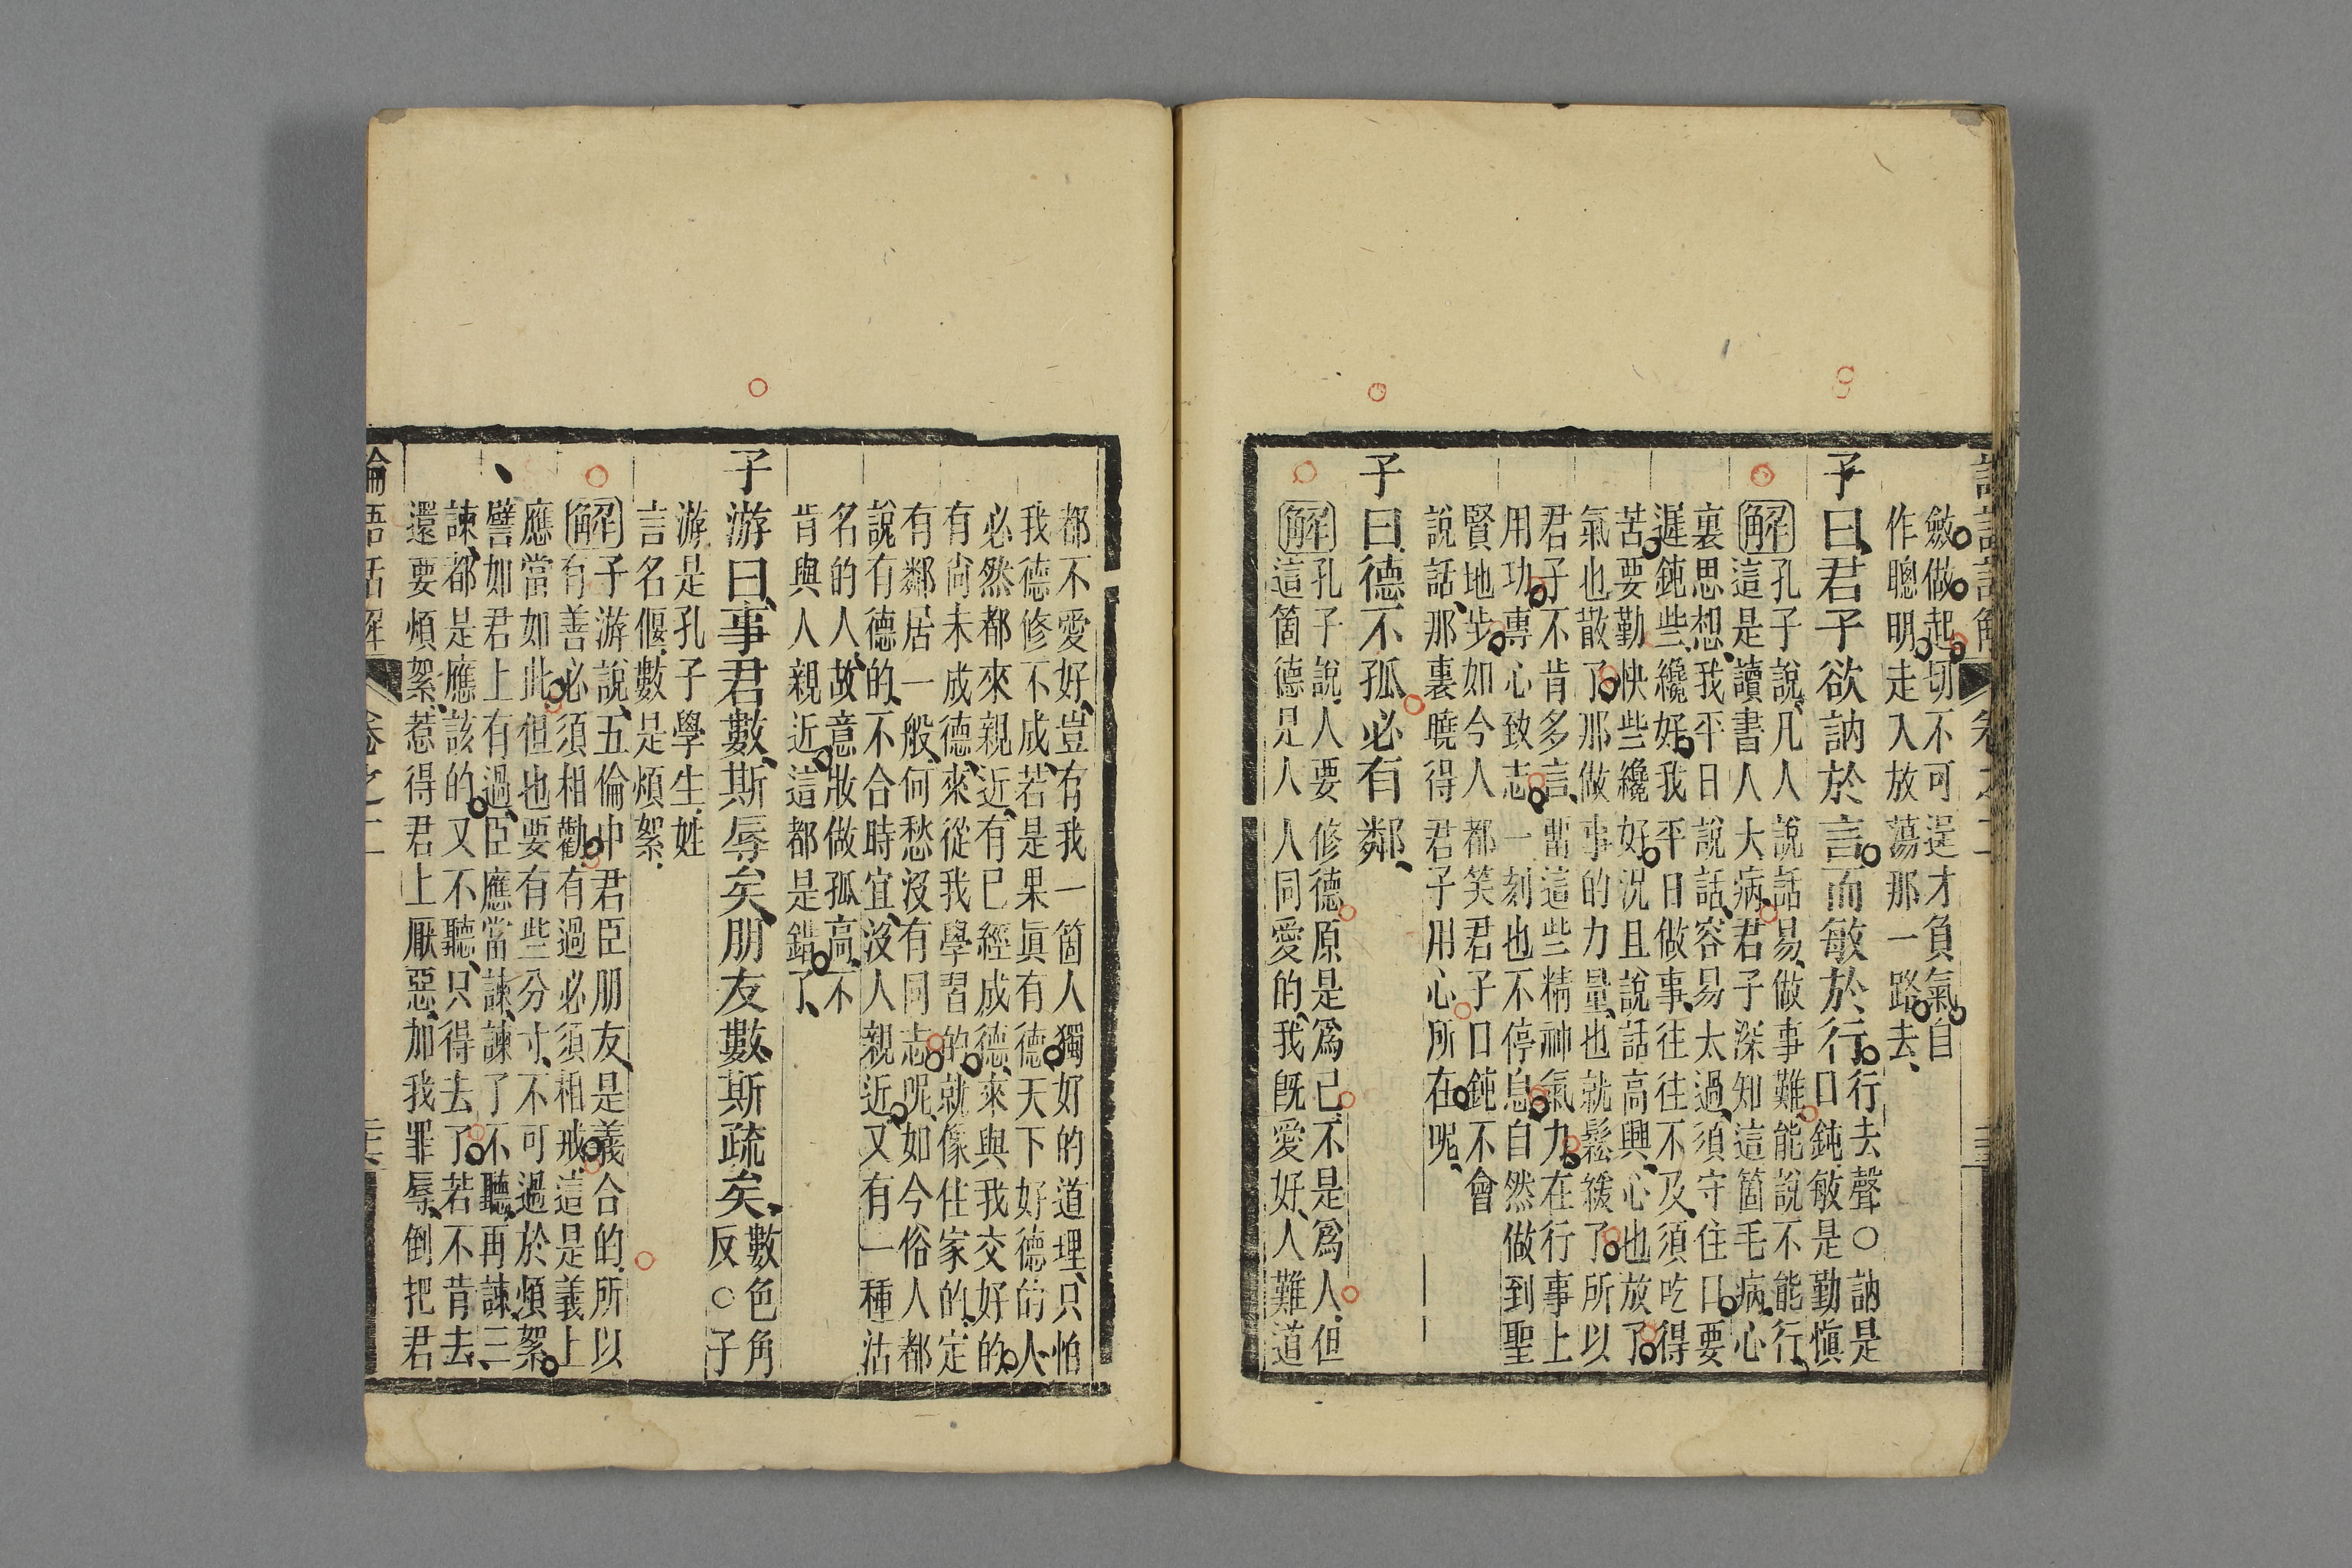 斂做起切不可逞才負氣自
作聰明走入放蕩那一路去
子曰君子欲訥於言而敏於行行去聲○訥是
口鈍敏是勤愼
解孔子說凡人說話易做事難能說不能行
這是讀書人大病君子深知這箇毛病心
裏思想我平日說話容易太過須守住口要
遲鈍些纔好我平日做事往往不及須吃得
苦要勤快些纔好況且說話高興心也放了
氣也散了那做事的力量也就鬆緩了所以
君子不肯多言畱這些精神氣力在行事上
用功專心致志一刻也不停息自然做到聖
賢地步如今人都笑君子口鈍不會
說話那裏曉得君子用心所在呢
子曰德不孤必有鄰
解孔子說人要修德原是爲己不是爲人但
這箇德是人人同愛的我旣愛好人難道
都不愛好豈有我一箇人獨好的道理只怕
我德修不成若是果眞有德天下好德的人
必然都來親近有已經成德來與我交好的
有尚未成德來從我學習的就像住家的定
有鄰居一般何愁沒有同志呢如今俗人都
說有德的不合時宜沒人親近又有一種沽
名的人故意妝做孤高不
肯與人親近這都是錯了
子游曰事君數斯辱矣朋友數斯疏矣數色角
反○子
游是孔子學生姓
言名偃數是煩絮
解子游說五倫中君臣朋友是義合的所以
有善必須相勸有過必須相戒這是義上
應當如此但也要有些分寸不可過於煩絮
譬如君上有過臣應當諫諫了不聽再諫三
諫都是應該的又不聽只得去了若不肯去
還要煩絮惹得君上厭惡加我罪辱倒把君
論語話解 卷之二